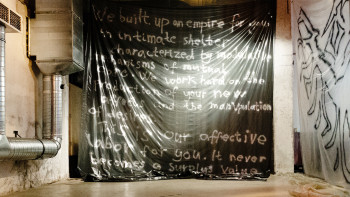 We built up an empire for you:
an intimate shelter
characterized by
of mutual
We work hard on the
of your new
and the manipulation
of desires
This is our affective
labor for you. It never
becomes a surplus value